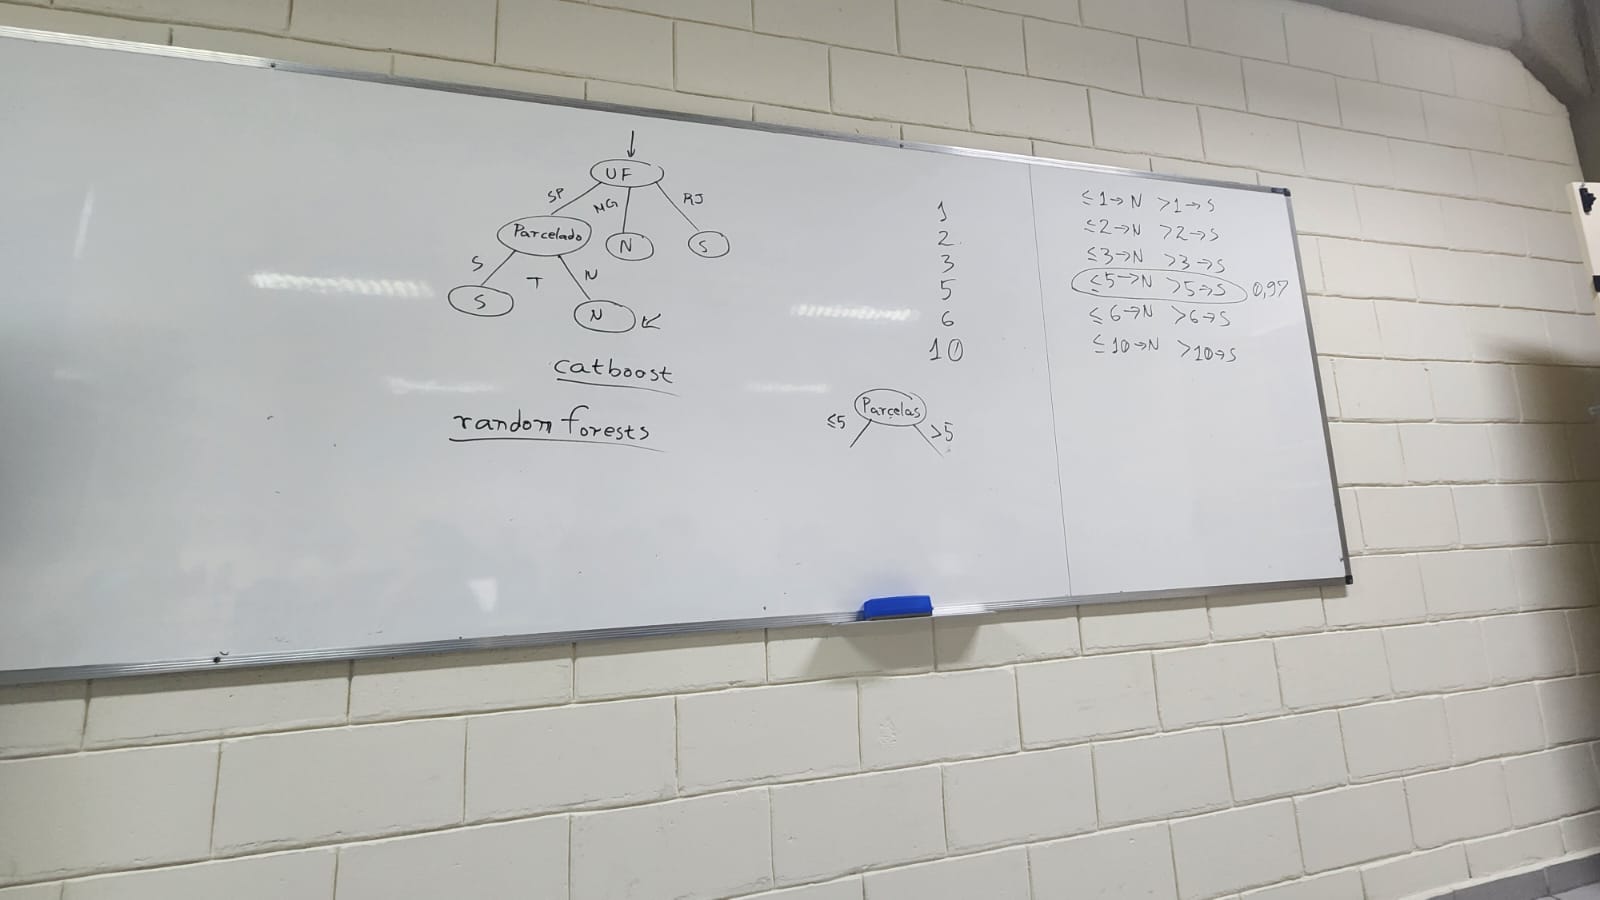 UF
SP MG RJ
Parcelado N S
S T N
S N
catboost
random forests
1
2
3
5
6
10
Parcelas
≤5 >5
≤1→N >1→S
≤2→N >2→S
≤3→N >3→S
≤5→N >5→S 0,97
≤6→N >6→S
≤10→N >10→S